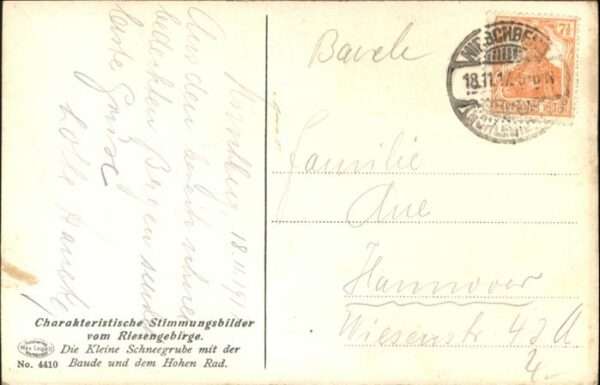 Hirschberg, 18.11.17
Aus den durch schnee
bedeckten Bergen sendet
beste Grüsse
Lotte
Charakteristische Stimmungsbilder
vom Riesengebirge.
Die Kleine Schneegrube mit der
Baude und dem Hohen Rad.
No. 4410
HIRSCHBERG
18.11.17. 5-6 N
7½
Familie
Aue
Hannover
Wiesenstr 43 A